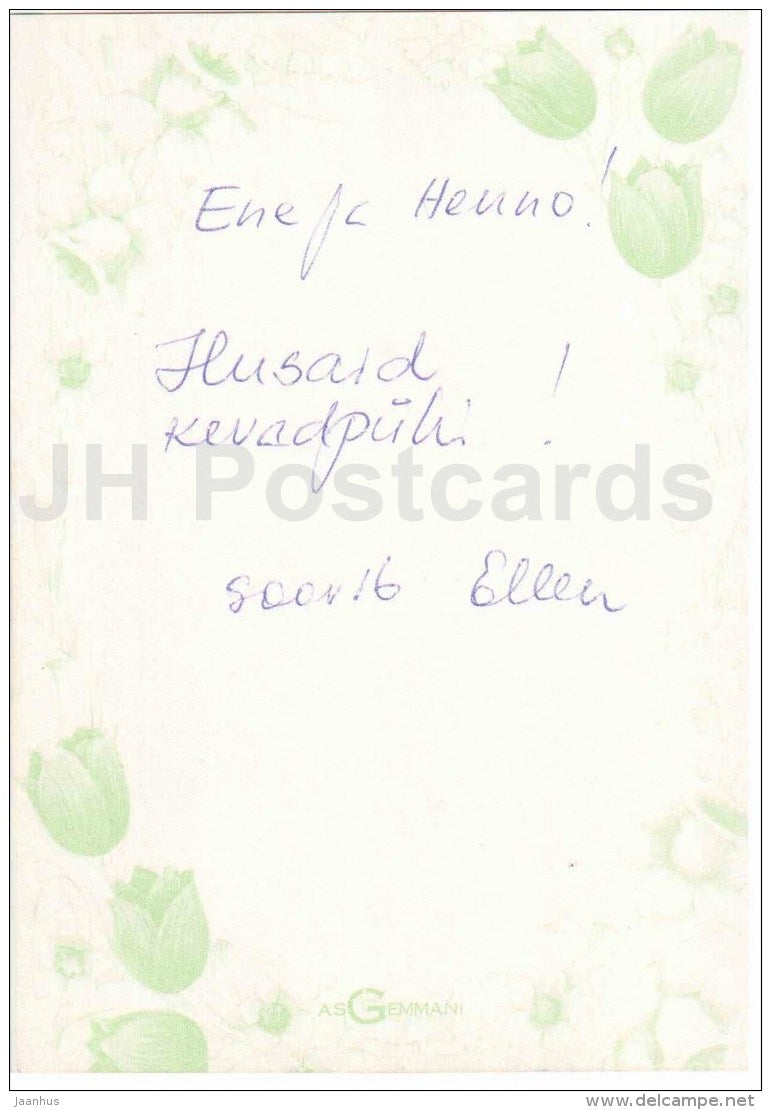 Ene ja Henno!
Ilusaid
kevadpühi !
JH Postcards
soovib Ellen
AS GEMMANI
Jaanhus
www.delcampe.net